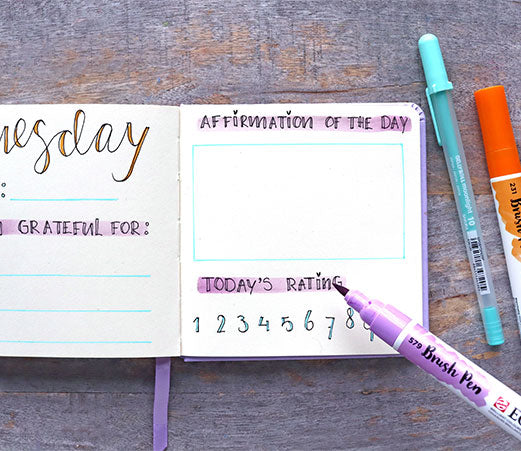 nesday
:
GRATEFUL FOR:
AFFIRMATION OF THE DAY
TODAY'S RATING
1 2 3 4 5 6 7 8 9
579 Brush Pen
10
231